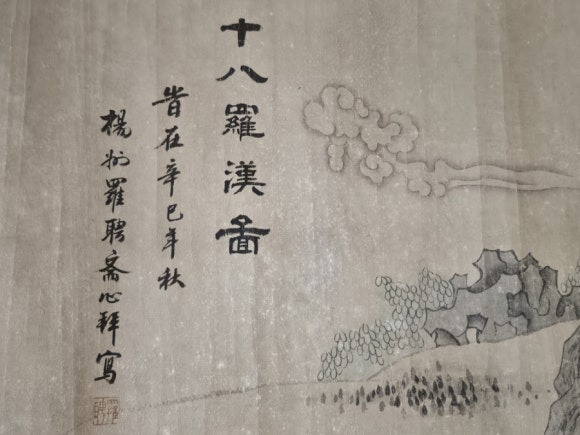 十八羅漢圖
昔在辛巳年秋
楊州羅聘齋心拜寫